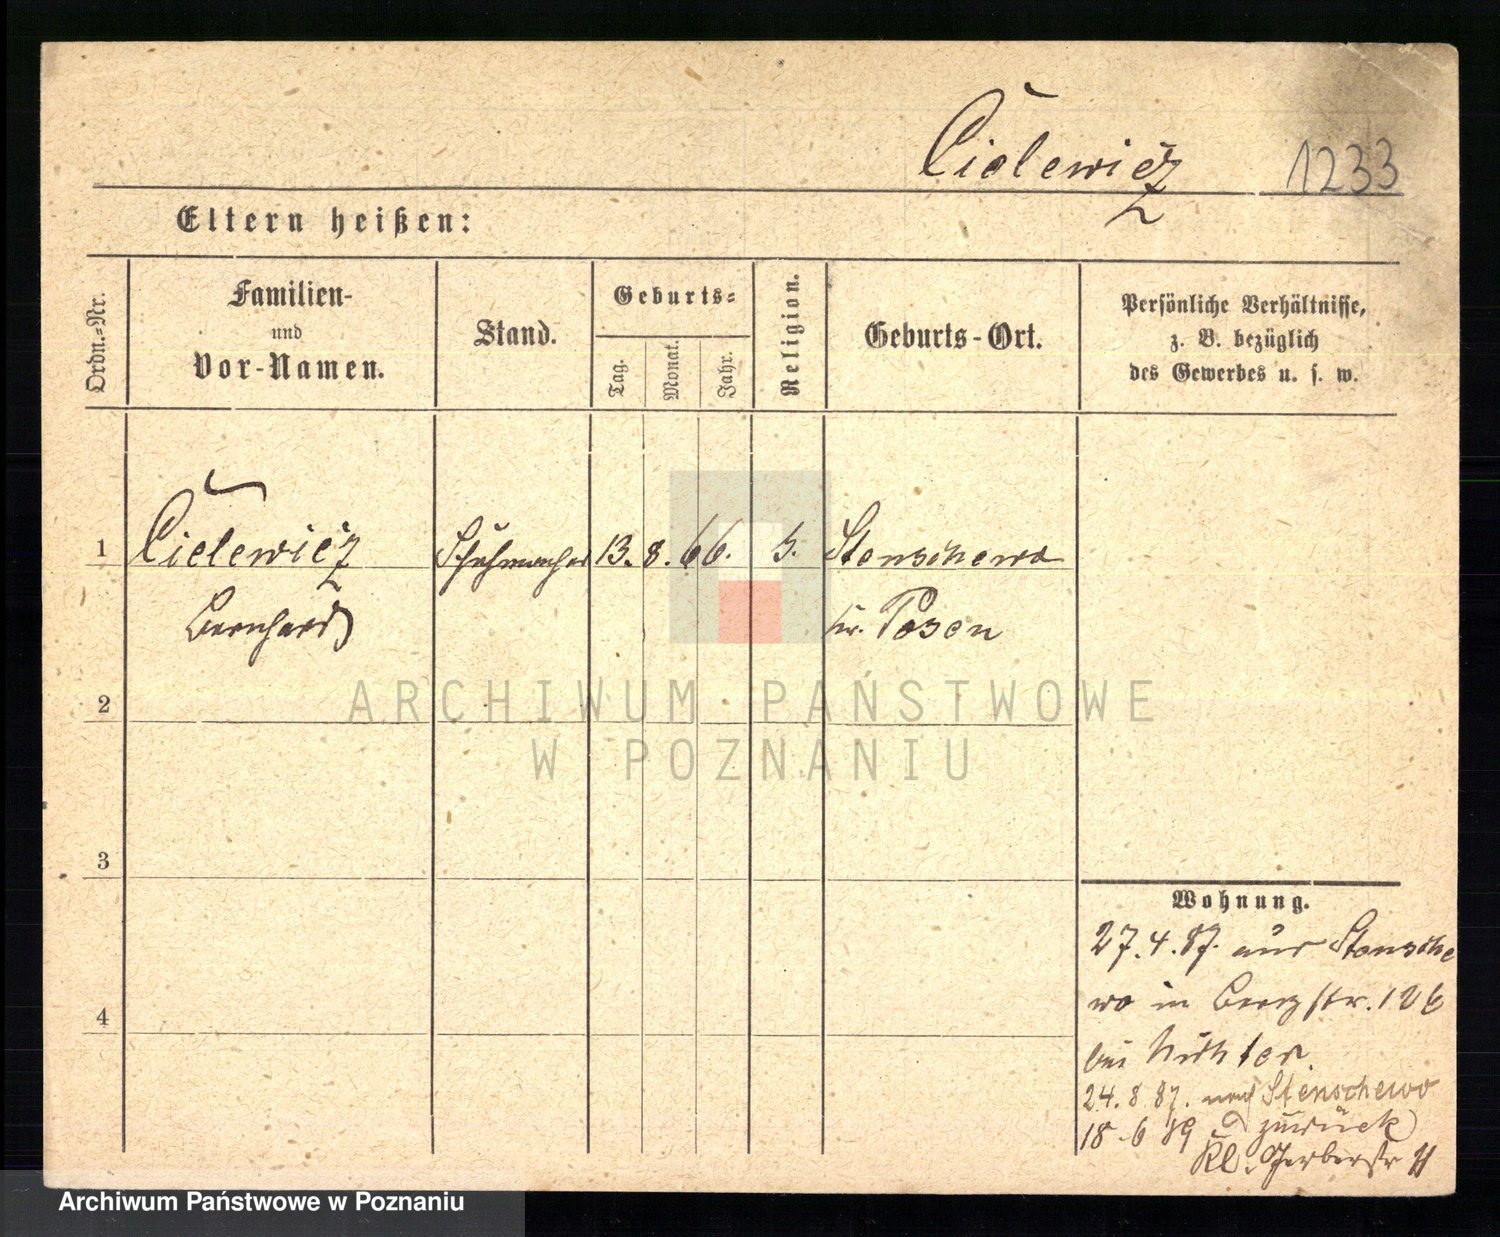 Cielewicz 1233
Eltern heißen:
Ordn.-Nr.
Familien-
und
Vor-Namen.
Stand.
Geburts-
Tag.
Monat.
Jahr.
Religion.
Geburts-Ort.
Persönliche Verhältnisse,
z. B. bezüglich
des Gewerbes u. s. w.
1 Cielewicz Schuhmacher 13. 8. 66. Stenschewo
Bernhard Kr. Posen
2
3
4
Wohnung.
27.4.87. aus Stensche
wo in Bergstr. 12b
bei Richter
24.8.87. nach Stenschewo
zurück
18.6.89
Kl. Gerberstr 11
ARCHIWUM PAŃSTWOWE
W POZNANIU
Archiwum Państwowe w Poznaniu